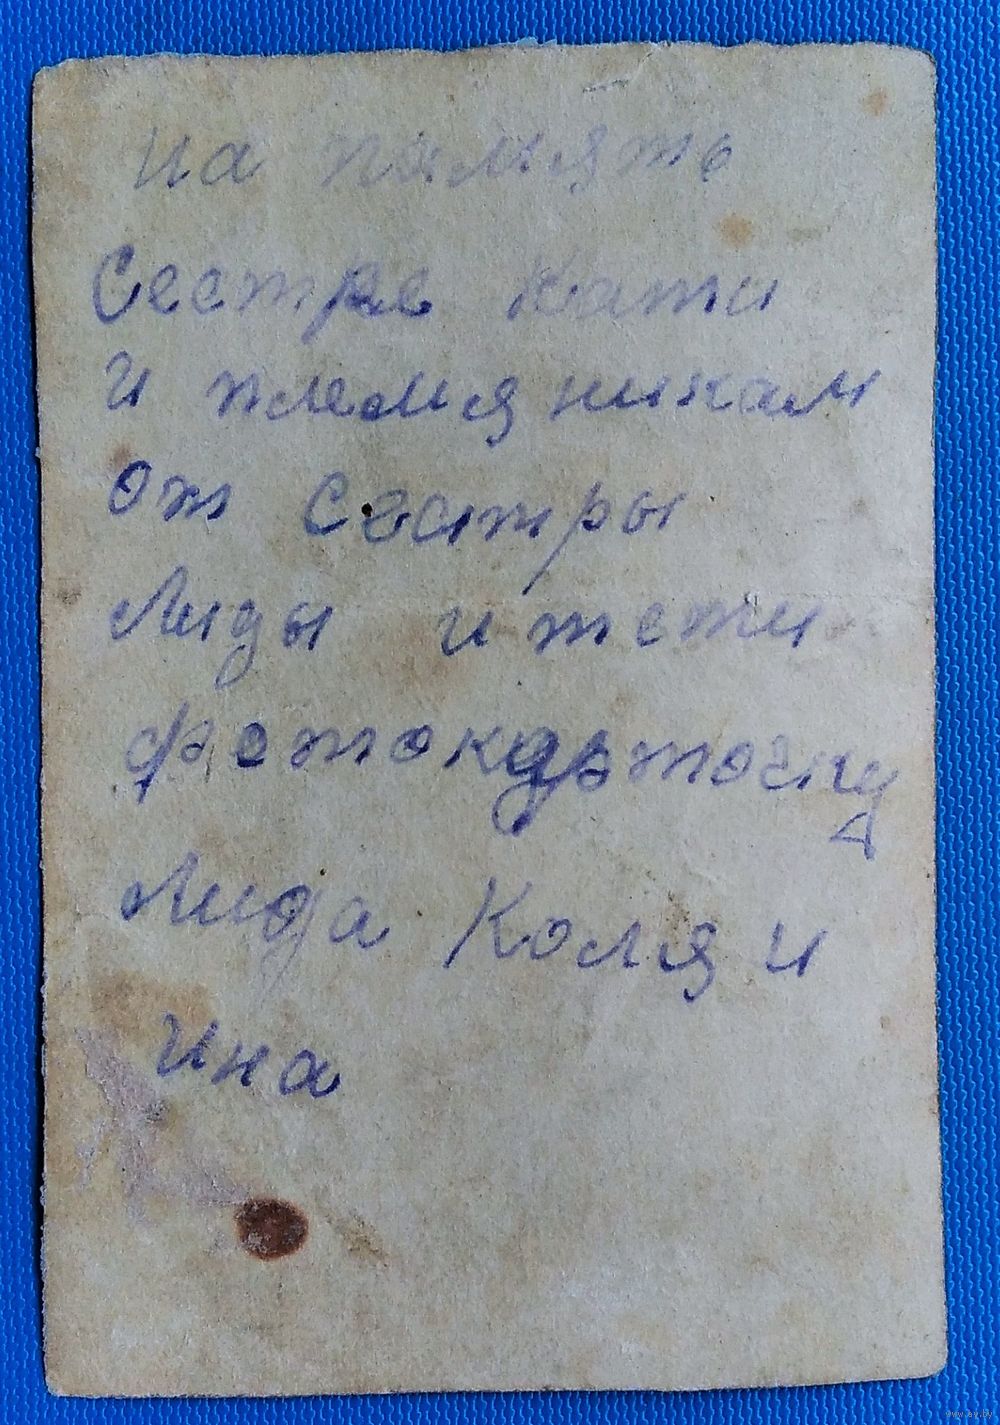 на память
Сестре Кати
и племяникам
от Сестры
Лиды и тети
фотокарточку
Лида Коля и
Ина
www.ay.by